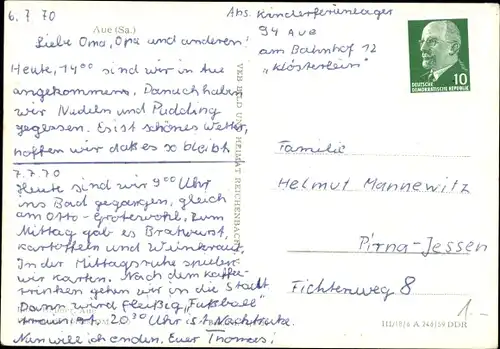 6.7.70
Aue (Sa.)
Liebe Oma, Opa und anderen!
Heute, 14⁰⁰ sind wir in Aue
angekommen. Danach haben
wir Nudeln und Pudding
gegessen. Es ist schönes Wetter,
hoffen wir daß es so bleibt
7.7.70
Heute sind wir 9⁰⁰ Uhr
ins Bad gegangen, gleich
am Otto-Grotewohl. Zum
Mittag gab es Bratwurst,
Kartoffeln und Weinkraut.
In der Mittagsruhe spielen
wir Karten. Nach dem Kaffe-
trinken gehen wir in die Stadt.
Dann wird fleißig "Fußball"
trainiert. 20³⁰ Uhr ist Nachtruhe.
Nun will ich enden. Euer Thomas!
VEB BILD UND HEIMAT REICHENBACH
Abs. Kinderferienlager
94 Aue
am Bahnhof 12
"Klösterlein"
10
DEUTSCHE
DEMOKRATISCHE REPUBLIK
Familie
Helmut Mannewitz
Pirna-Jessen
Fichtenweg 8
1.-
III/18/6 A 246/69 DDR